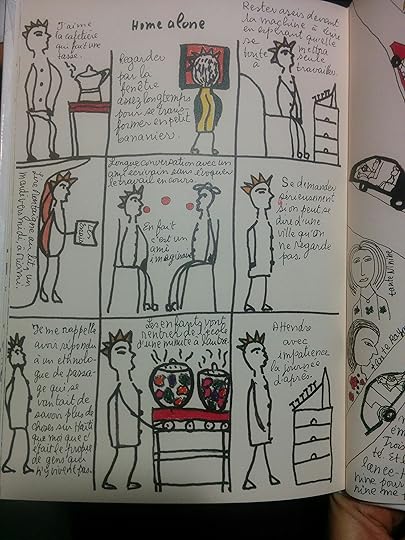 Home alone
J'aime
la cafetière
qui fait une
tasse.
Regarder
par la
fenêtre
assez longtemps
pour se trans-
former en petit
bananier.
Rester assis devant
la machine à écrire
en espérant qu'elle
se
mettra
toute
seule
à
travailler.
Lire Montaigne au lit un
mardi vers midi, à Miami.
Longue conversation avec un
ami écrivain sans évoquer
le travail en cours.
En fait
c'est un
ami
imaginaire
Se demander
sérieusement
si on peut se
dire d'une
ville qu'on
ne regarde
pas
Je me rappelle
avoir répondu
à un ethnolo-
gue de passa-
ge qui se
vantait de
savoir plus de
choses sur Haïti
que moi que c'
était le propre
de gens qui
n'y vivent pas.
Les enfants vont
rentrer de l'école
d'une minute à l'autre.
Attendre
avec
impatience
la journée
d'après.
tante Ninine